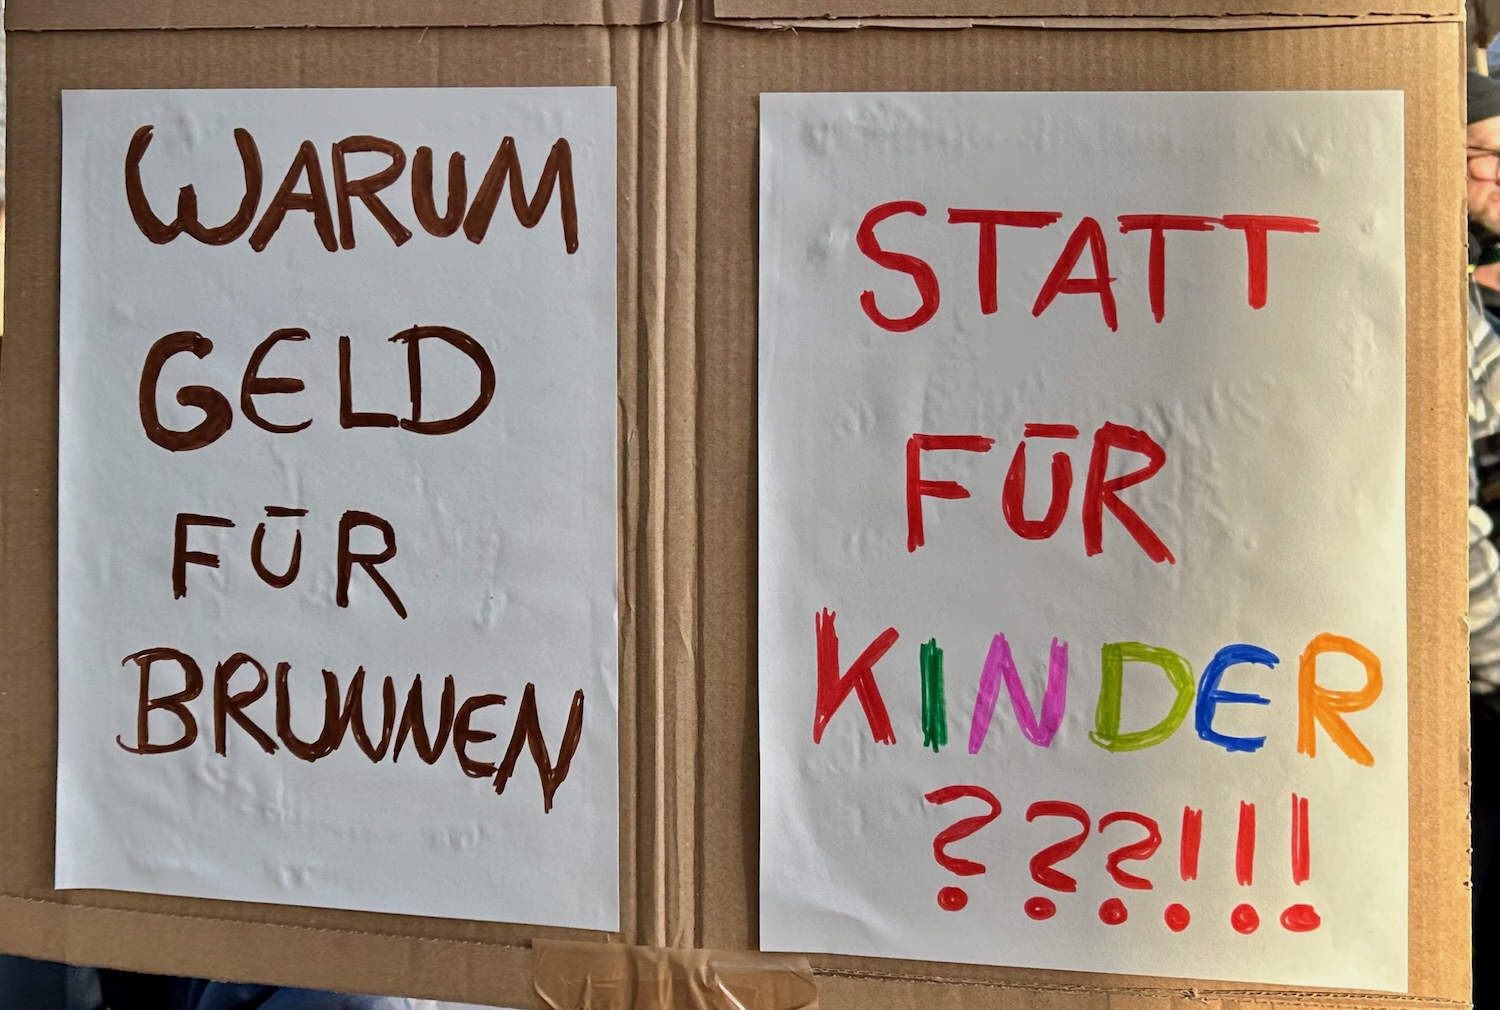 WARUM
GELD
FÜR
BRUNNEN
STATT
FÜR
KINDER
???!!!